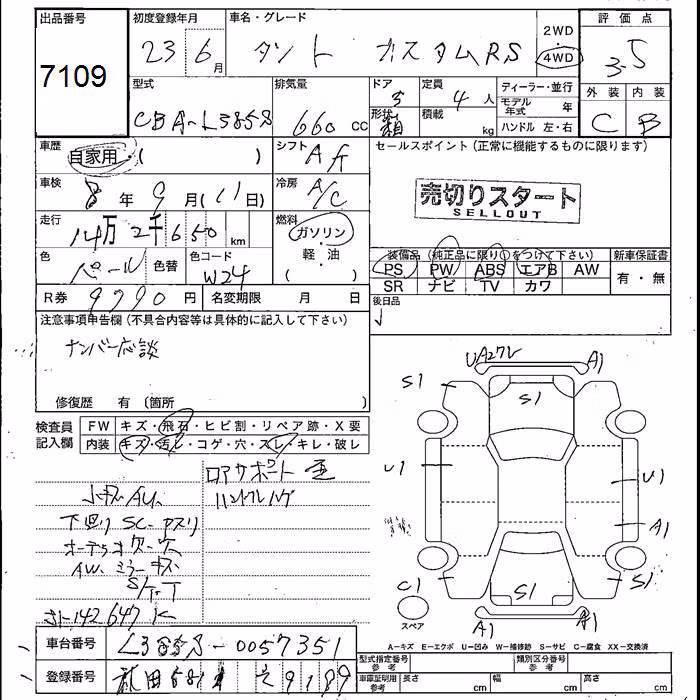 出品番号
7109
初度登録年月
23 6月
車名・グレード
タント カスタムRS
2WD
4WD
評価点
3.5
型式
CBA-L385S
排気量
660 cc
ドア
5
形状
箱
定員
4 人
積載
kg
ディーラー・並行
モデル年式 年
ハンドル 左・右
外装
内装
C
B
車歴
自家用 ( )
シフト
AT
セールスポイント (正常に機能するものに限ります)
車検
8年 9月 (11日)
冷房
A/C
売切りスタート
SELLOUT
走行
14万2千650 km
燃料
ガソリン
軽・油
( )
色
パール
色替
色コード
W24
装備品 (純正品に限り○をつけて下さい)
新車保証書
PS PW ABS エアB AW
SR ナビ TV カワ
有・無
R券 9990 円
名変期限 月 日
後日品
注意事項申告欄 (不具合内容等は具体的に記入して下さい)
ナンバー応談
修復歴 有 (箇所 )
検査員
記入欄
FW
キズ・飛石・ヒビ割・リペア跡・X要
内装
キズ・汚レ・コゲ・穴・スレ・キレ・破レ
ロアサポート歪
ハンドルハゲ
小キズAU.
下廻りSC-Pスリ
AW. ミラーキズ
142,647K
UA27V
A1
S1
S1
U1
U1
A1
C1
S1
S1
A1
A1
スペア
A-キズ E-エクボ U-凹み W-補修跡 S-サビ C-腐食 XX-交換済
車台番号
L385S-0057351
登録番号
9189
型式指定番号
参考
類別区分番号
参考
車庫証明用
参考
長さ cm
幅 cm
高さ cm